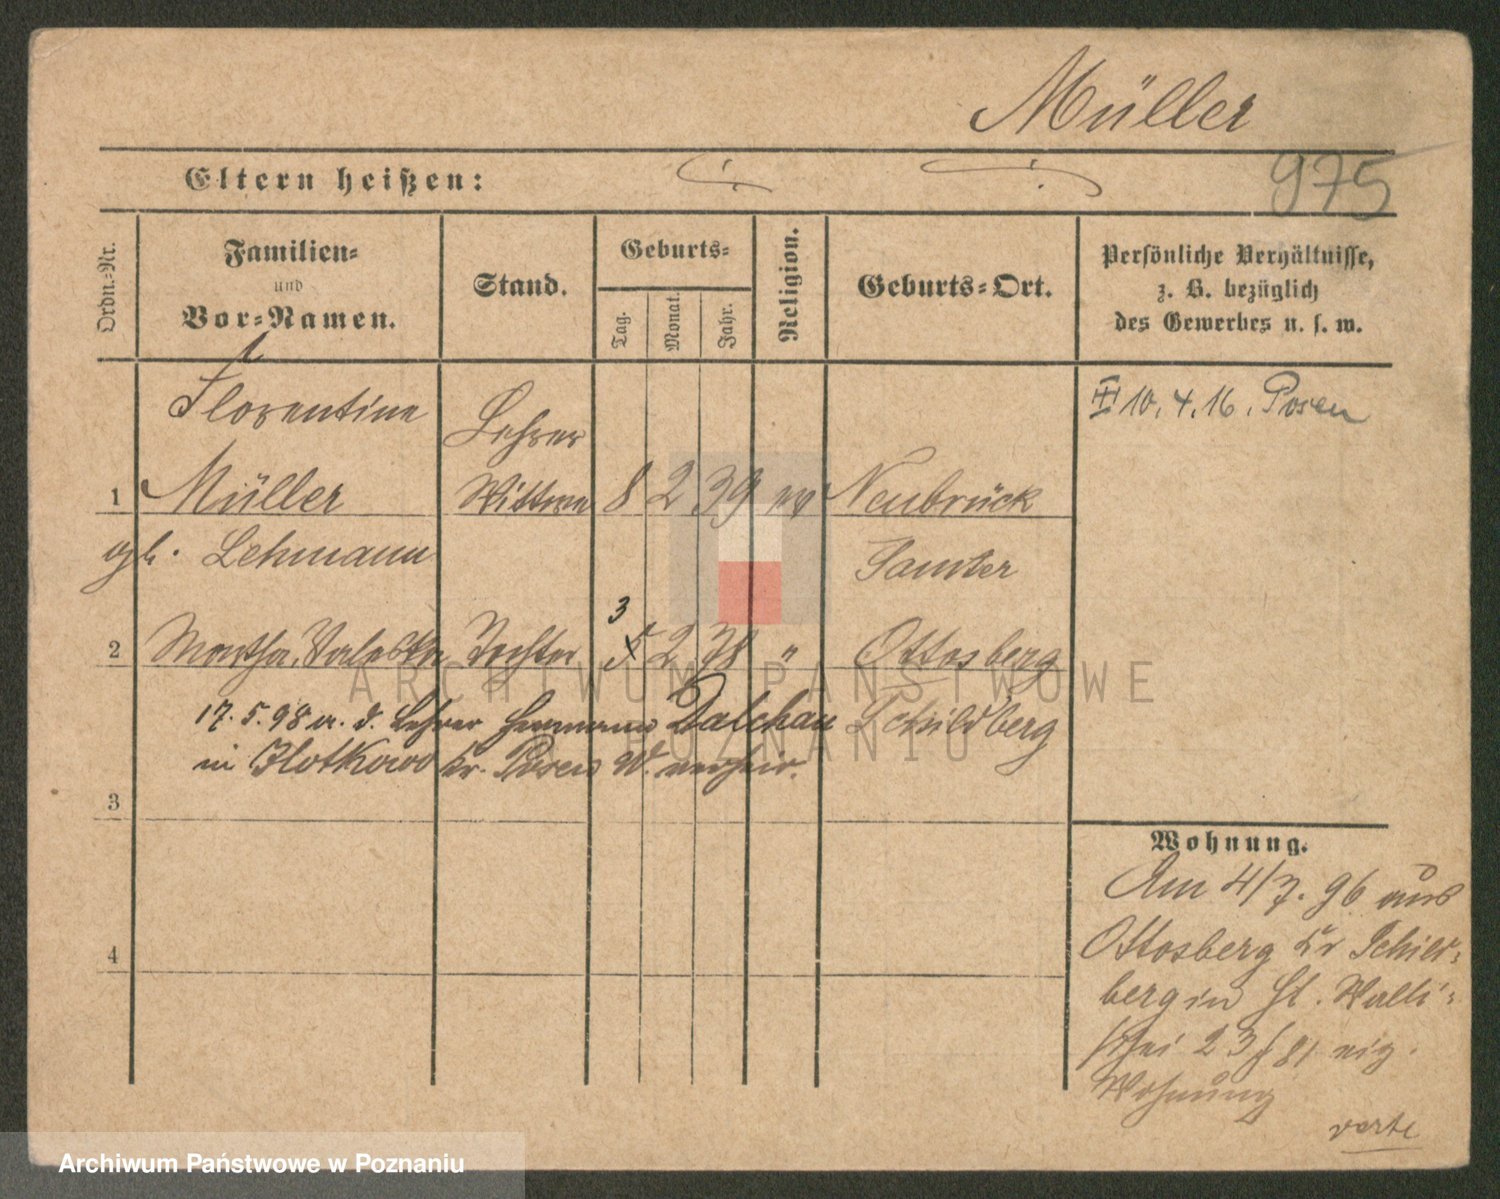 Müller
Eltern heißen:
975
Ordn.-Nr.
Familien-
und
Vor-Namen.
Stand.
Geburts-
Tag.
Monat.
Jahr.
Religion.
Geburts-Ort.
Persönliche Verhältnisse,
z. B. bezüglich
des Gewerbes u. s. w.
Florentine
Lehrer
III 10. 4. 16. Posen
1 Müller Wittwe 8 2 39 ev Neubrück
gb. Lehmann Samter
3
2 Martha, Valeska Tochter 5 2 78 " Ottosberg
17. 5. 98 a. d. Lehrer Hermann Dalchau Schildberg
in Zlotkowo Kr. Posen W. verheir.
3
4
Wohnung.
Am 4/7. 96 aus
Ottosberg Kr Schild-
berg in St. Walli-
schei 23 81 eig.
Wohnung
verte
ARCHIWUM PAŃSTWOWE
W POZNANIU
Archiwum Państwowe w Poznaniu